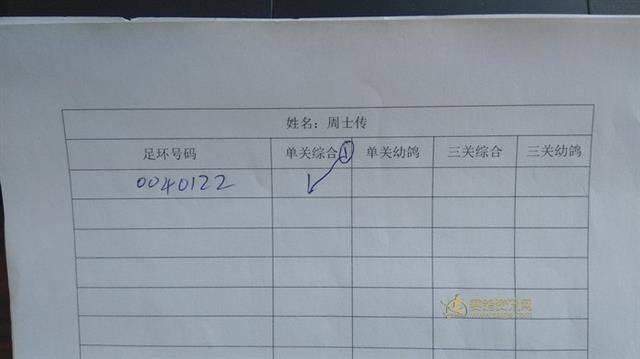 姓名：周士传
足环号码 单关综合1 单关幼鸽 三关综合 三关幼鸽
0040122 ✓
赛鸽资讯网